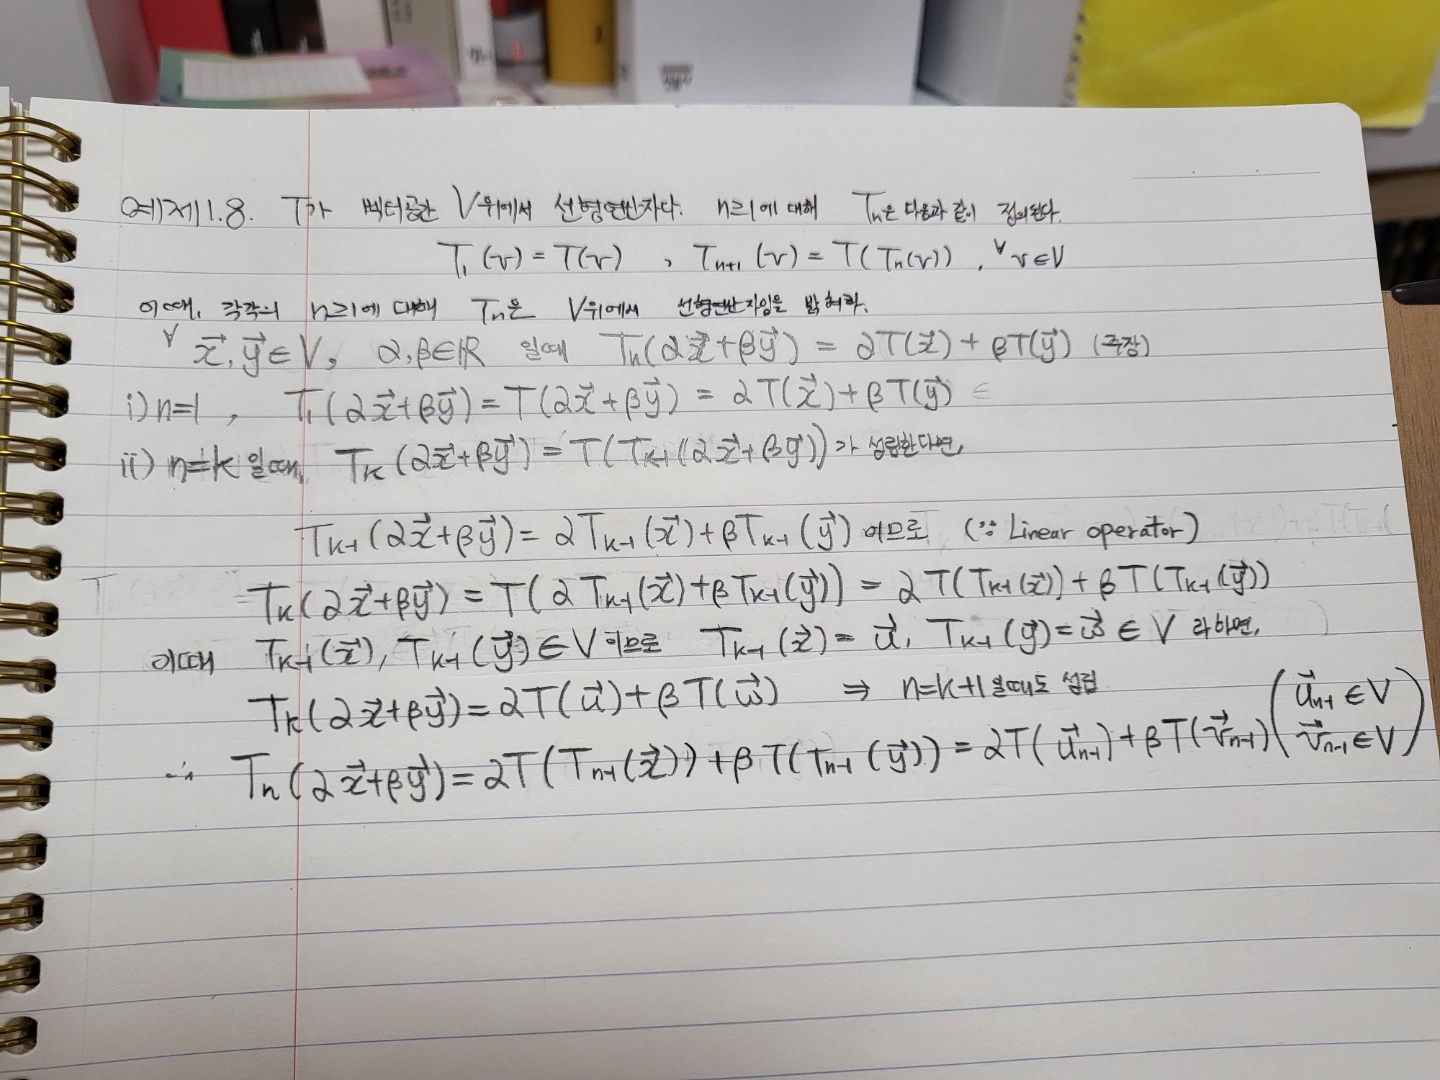 예제1.8. T가 벡터공간 V위에서 선형연산자다. n≥1에 대해 Tₙ은 다음과 같이 정의된다.
T₁(v) = T(v) , Tₙ₊₁(v) = T(Tₙ(v)) , ∀v∈V
이때, 각각의 n≥1에 대해 Tₙ은 V위에서 선형연산자임을 밝혀라.
∀x⃗, y⃗∈V, α, β∈ℝ 일때 Tₙ(αx⃗+βy⃗) = αT(x⃗) + βT(y⃗) (주장)
i) n=1 , T₁(αx⃗+βy⃗) = T(αx⃗+βy⃗) = αT(x⃗) + βT(y⃗)
ii) n=k 일때, Tₖ(αx⃗+βy⃗) = T(Tₖ₋₁(αx⃗+βy⃗))가 성립한다면,
Tₖ₋₁(αx⃗+βy⃗) = αTₖ₋₁(x⃗) + βTₖ₋₁(y⃗) 이므로 (∵ Linear operator)
Tₖ(αx⃗+βy⃗) = T(αTₖ₋₁(x⃗) + βTₖ₋₁(y⃗)) = αT(Tₖ₋₁(x⃗)) + βT(Tₖ₋₁(y⃗))
이때 Tₖ₋₁(x⃗), Tₖ₋₁(y⃗)∈V 이므로 Tₖ₋₁(x⃗) = u⃗, Tₖ₋₁(y⃗) = w⃗ ∈ V 라하면,
Tₖ(αx⃗+βy⃗) = αT(u⃗) + βT(w⃗) ⇒ n=k+1 일때도 성립
∴ Tₙ(αx⃗+βy⃗) = αT(Tₙ₋₁(x⃗)) + βT(Tₙ₋₁(y⃗)) = αT(u⃗ₙ₋₁) + βT(v⃗ₙ₋₁) (u⃗ₙ₋₁∈V
v⃗ₙ₋₁∈V)